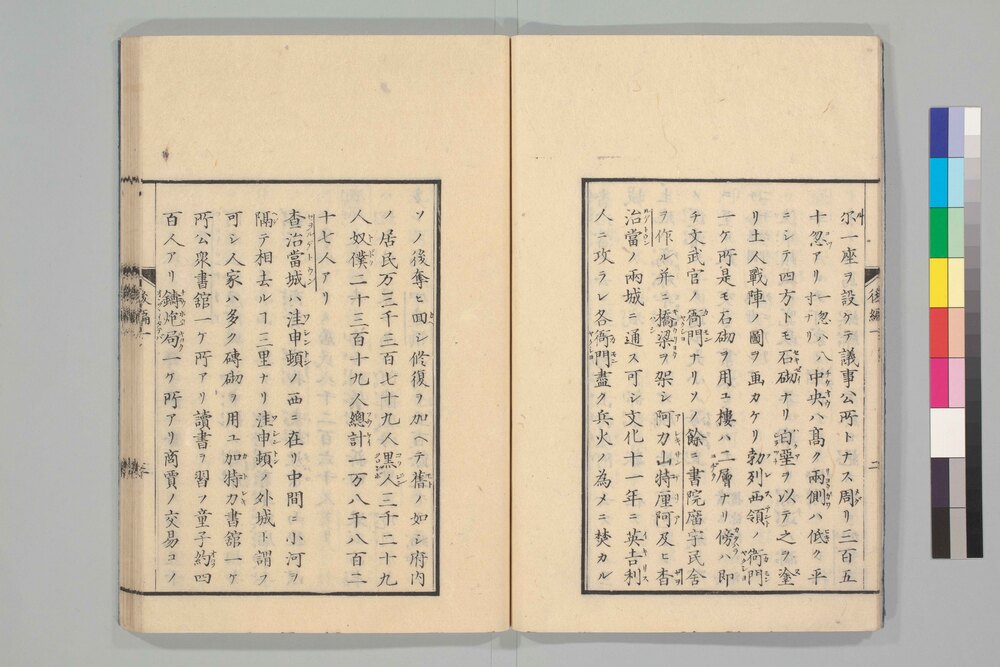 尓一座ヲ設ケテ議事公所トナス周リ三百五
十忽アリ一忽ハ八寸ナリ中央ハ高ク兩側ハ低ク平
ニシテ四方トモ石砌ナリ白堊ヲ以テ之ヲ塗
リ土人戰陣ノ圖ヲ画カケリ勃列西領ノ衙門
一ケ所是モ石砌ヲ用ユ樓ハ二層ナリ傍ハ即
チ文武官ノ衙門ナリソノ餘ニ書院廨宇民舎
ヲ作ル并ニ橋梁ヲ架シ阿力山特厘阿及ヒ査
治當ノ兩城ニ通ス可シ文化十一年ニ英吉利
人ニ攻ラレ各衙門盡ク兵火ノ為メニ焚カル
後編一
二
ソノ後奪ヒ回シ修復ヲ加ヘテ舊ノ如シ府内
ノ居民万三千三百七十九人黒人三千二十九
人奴僕二十三百十九人總計一万八千八百二
十七人アリ
査治當城ハ洼申頓ノ西ニ在リ中間ニ小河ヲ
隔テ相去ルヿ三里ナリ洼申頓ノ外城ト謂フ
可シ人家ハ多ク磚砌ヲ用ユ加特力書舘一ケ
所公衆書舘一ケ所アリ讀書ヲ習フ童子約四
百人アリ鑄炮局一ケ所アリ商賈ノ交易コノ
後編一
三